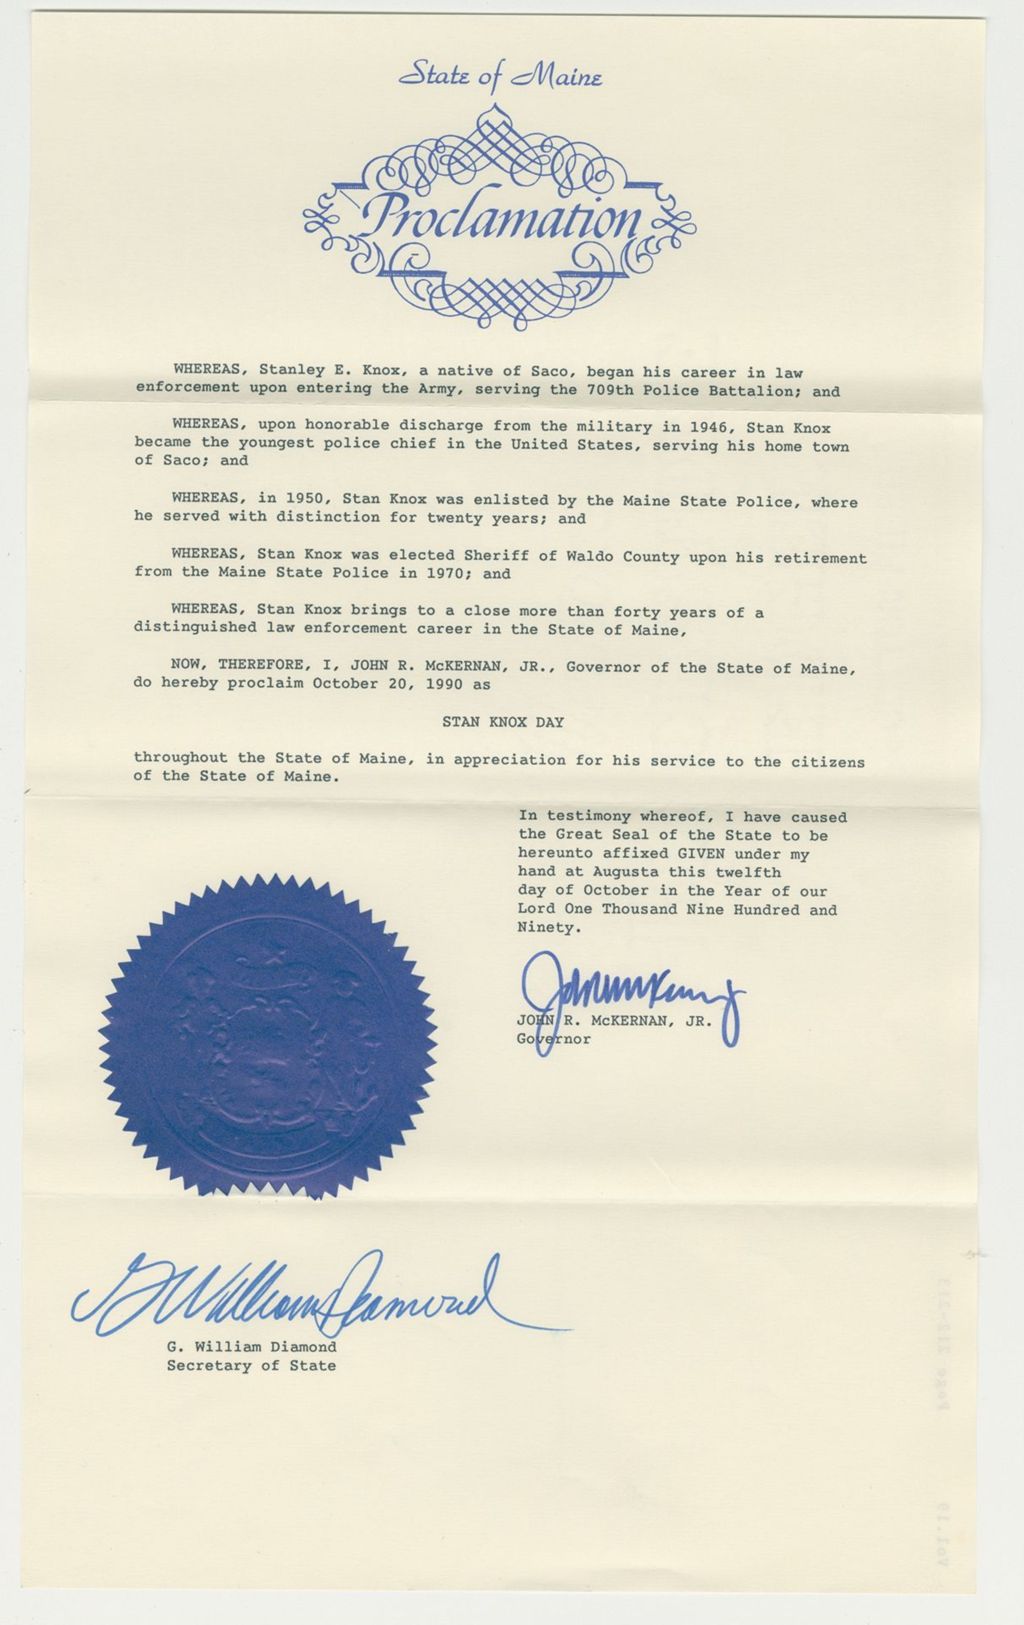 State of Maine
Proclamation
WHEREAS, Stanley E. Knox, a native of Saco, began his career in law
enforcement upon entering the Army, serving the 709th Police Battalion; and
WHEREAS, upon honorable discharge from the military in 1946, Stan Knox
became the youngest police chief in the United States, serving his home town
of Saco; and
WHEREAS, in 1950, Stan Knox was enlisted by the Maine State Police, where
he served with distinction for twenty years; and
WHEREAS, Stan Knox was elected Sheriff of Waldo County upon his retirement
from the Maine State Police in 1970; and
WHEREAS, Stan Knox brings to a close more than forty years of a
distinguished law enforcement career in the State of Maine,
NOW, THEREFORE, I, JOHN R. McKERNAN, JR., Governor of the State of Maine,
do hereby proclaim October 20, 1990 as
STAN KNOX DAY
throughout the State of Maine, in appreciation for his service to the citizens
of the State of Maine.
In testimony whereof, I have caused
the Great Seal of the State to be
hereunto affixed GIVEN under my
hand at Augusta this twelfth
day of October in the Year of our
Lord One Thousand Nine Hundred and
Ninety.
JOHN R. McKERNAN, JR.
Governor
G William Diamond
G. William Diamond
Secretary of State
Vol. 19 Page 212-213